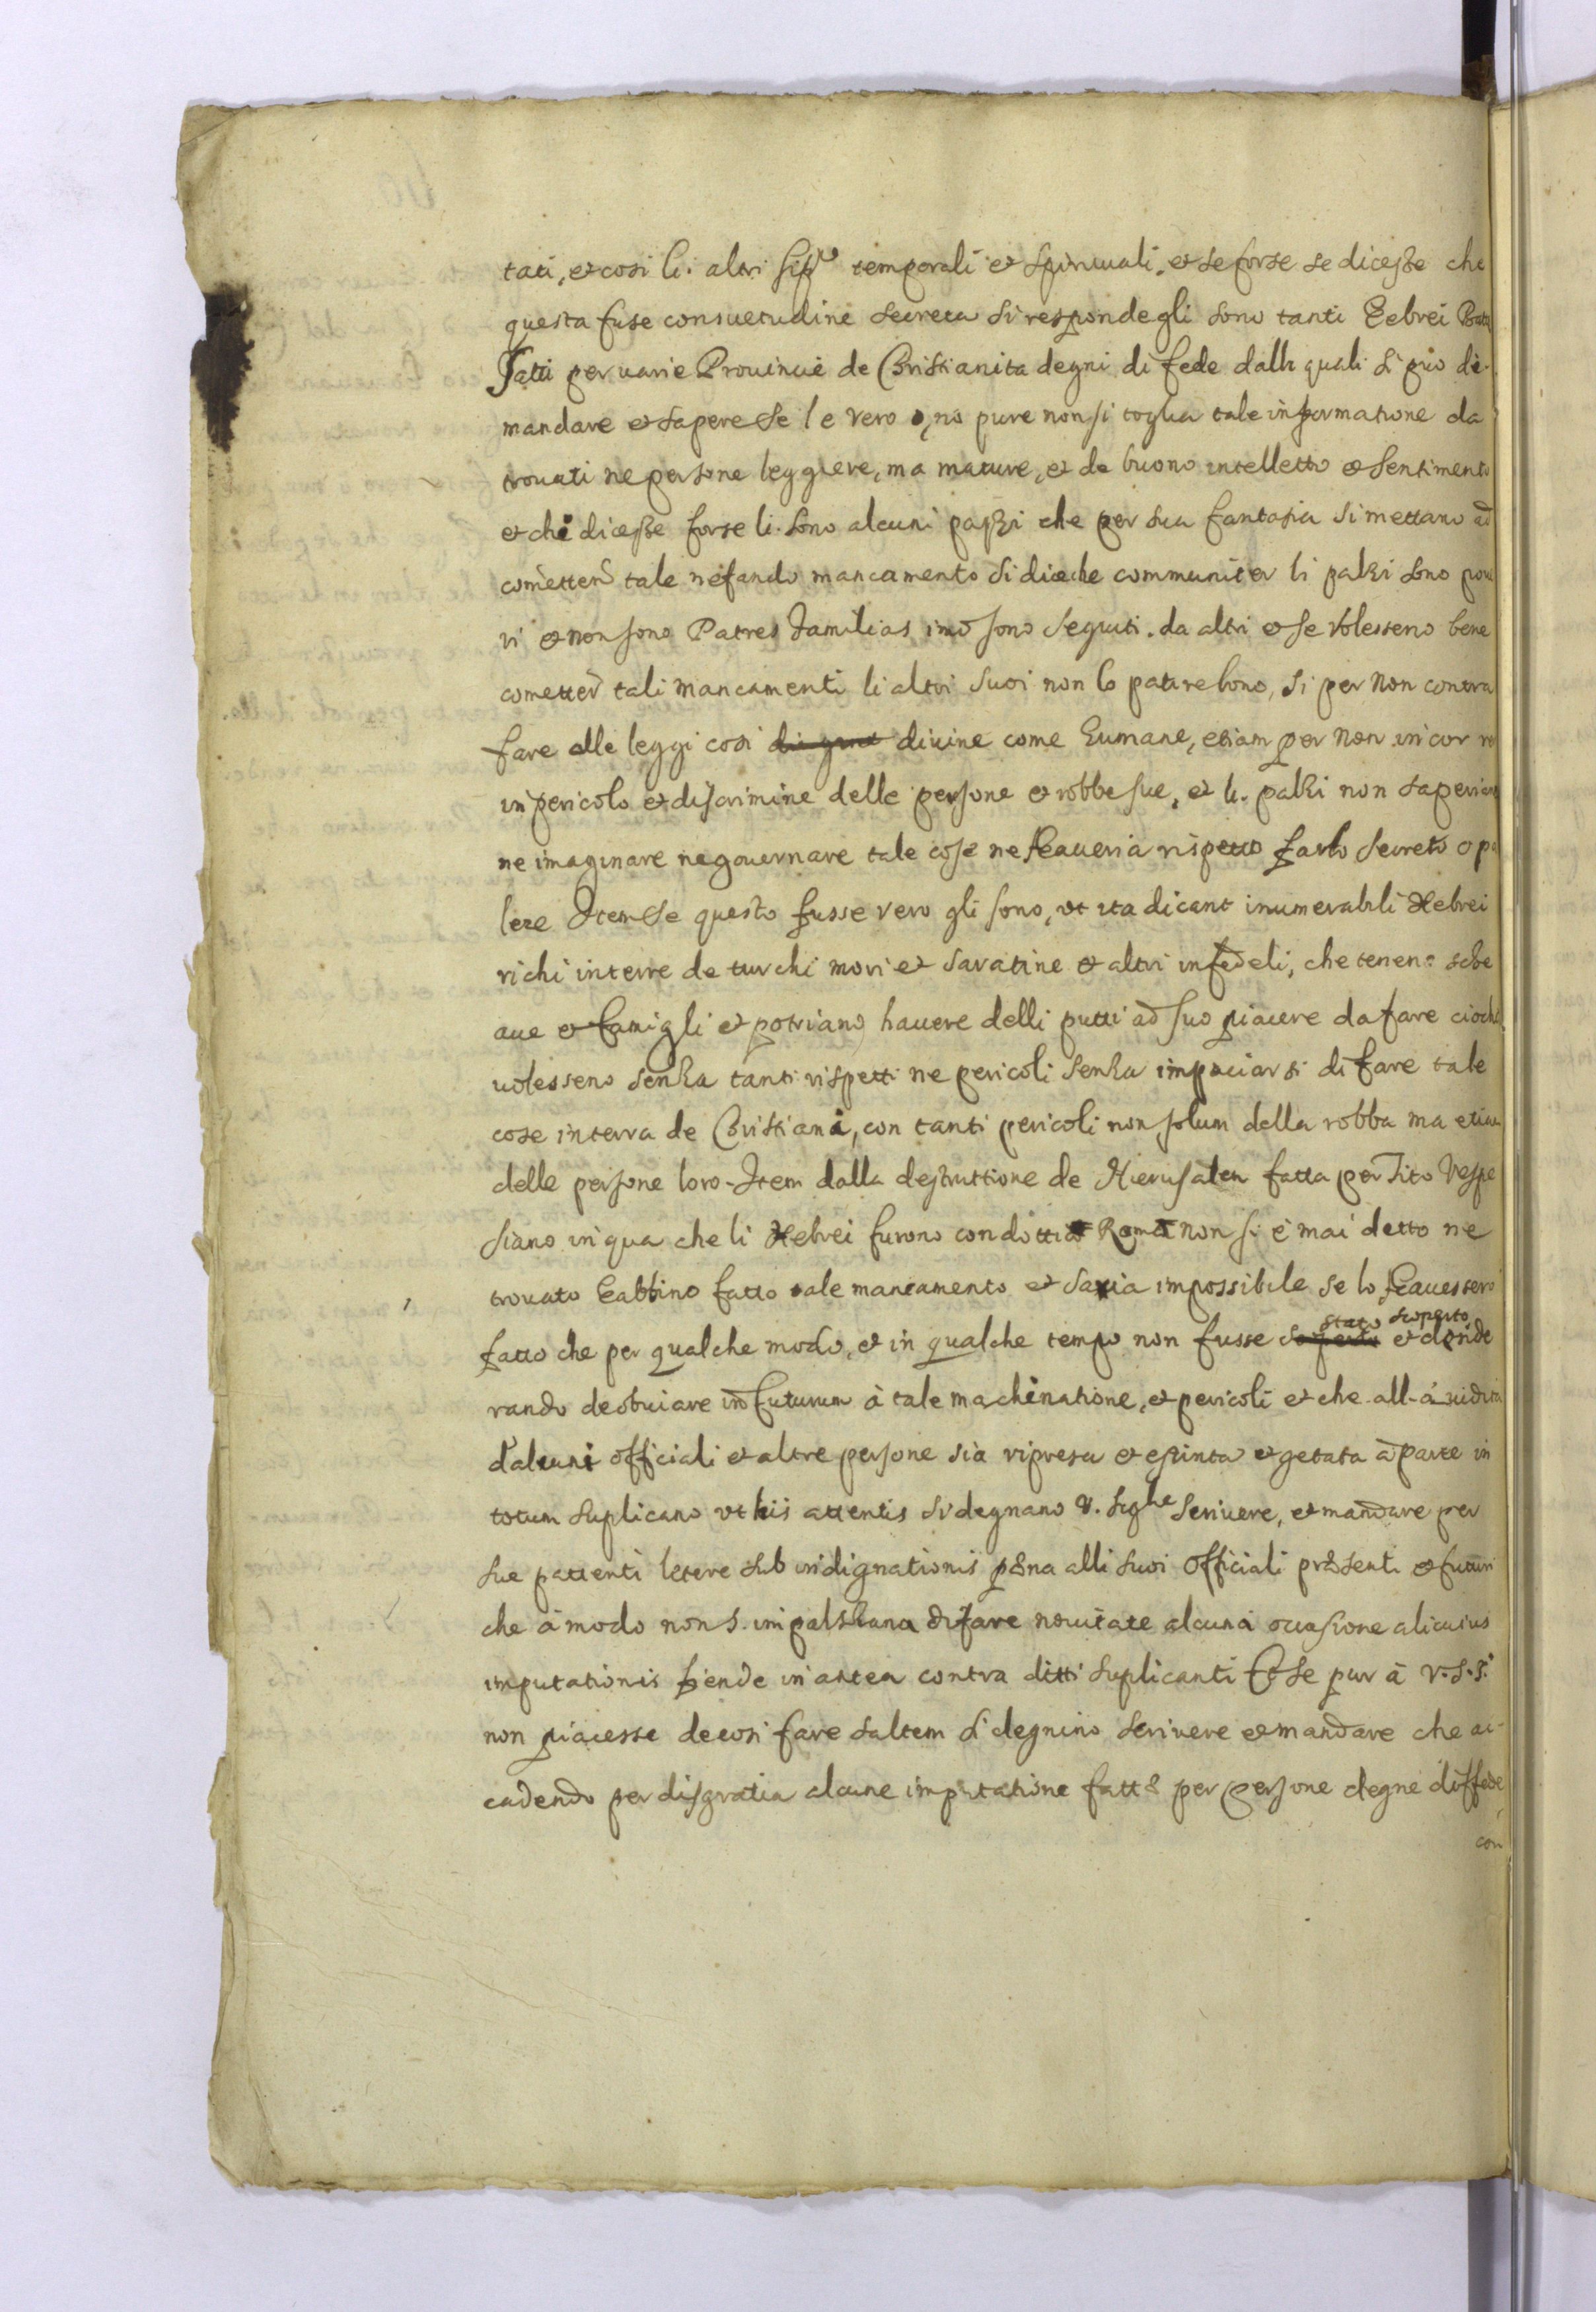 tati, et cosi li. altri Sigri temporali et Spirituali, et se forse se dicesse che
questa fuse consuetudine secreta si responde gli sono tanti Hebrei Bate
Jatti per uarie Prouincie de Christianita degni di fede dalli quali si può di-
mandare et sapere se l e vero o, no pure non si toglia tale informatione da
trouati ne persone leggiere, ma mature, et de buono intelletto et sentimento
et chi dicesse forse li. sono alcuni pazzi che per sua fantasia si mettano ad
cometter tale nefando mancamento si dice che communiter li pazzi sono poue
ri et non sono Patres Familias imò sono seguiti. da altri et se volesseno bene
cometter tali mancamenti li altri suoi non lo patirebono, si per non contra
fare alle leggi cosi divine come humane, etiam per non incorre
in pericolo et discrimine delle persone et robbe sue, et li. pazzi non saperiano
ne imaginare ne gouernare tale cose ne haueria rispetto farlo secreto o pa
lese Item se questo fusse vero gli sono, ut ita dicant inumerabili Hebrei
richi in terre de turchi mori et saratine et altri infedeli, che teneno schi
aue et famigli et potriano hauere delli putti ad suo piacere da fare cioche
uolesseno senza tanti rispetti ne pericoli senza impaciarsi di fare tale
cose in terra de Christiani, con tanti pericoli non solum della robba ma etiam
delle persone loro - Item dalla destruttione de Hierusalem fatta per Tito Vespe
siano in qua che li Hebrei furono condotti à Roma non si è mai detto ne
trouato habbino fatto tale mancamento et saria impossibile se lo hauessero
fatto che per qualche modo, et in qualche tempo non fusse stato scoperto et deside
rando de obuiare in futurum à tale machinatione, et pericoli et che all-auidità
d'alcuni officiali et altre persone sia ripresa et estinta et getata à parte in
totum suplicano ut his attentis si degnano V. Sighe scriuere, et mandare per
sue pattenti letere sub indignationis pena alli suoi officiali presenti et futuri
che à modo non s. impalshana di fare nouitate alcuna occasione alicuius
imputationis fiende in antea contra ditti suplicanti Et se pur à V. S. S.
non piacesse de cosi fare saltem si degnino scriuere et mandare che ac-
cadendo per disgratia alcune imputatione fatte per persone degne di fede
con